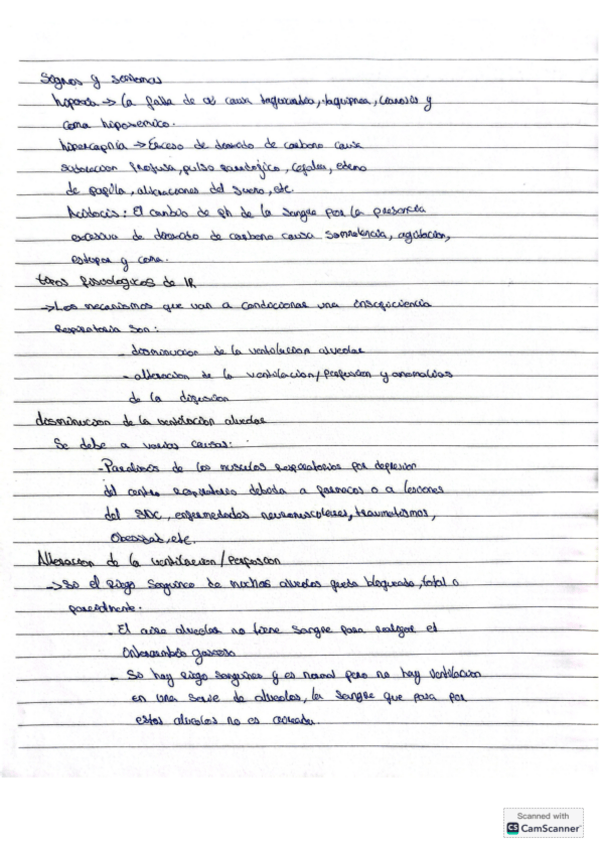 Signos y sintomas
hipoxia → La falta de O2 causa taquicardia, taquipnea, cianosis y
coma hipoxemico.
hipercapnia → Exceso de dioxido de carbono causa
sudoracion profusa, pulso paradojico, cefalea, edema
de papila, alteraciones del sueño, etc.
Acidosis: El cambio de ph de la sangre por la presencia
excesiva de dioxido de carbono causa somnolencia, agitacion,
estupor y coma.
tipos fisiologicos de IR
→ Los mecanismos que van a condicionar una insuficiencia
Respiratoria son:
- disminucion de la ventilacion alveolar
- alteracion de la ventilacion/Perfusion y anomalias
de la difusion
disminucion de la ventilacion alveolar
Se debe a varias causas:
- Paralisis de los musculos respiratorios por depresion
del centro respiratorio debida a farmacos o a lesiones
del SNC, enfermedades neuromusculares, traumatismos,
Obesidad, etc.
Alteracion de la ventilacion/Perfusion
→ Si el Riego Sanguineo de muchos alveolos queda bloqueado, total o
parcialmente.
- El aire alveolar no tiene sangre para realizar el
Intercambio gaseoso
- Si hay Riego Sanguineo y es normal pero no hay ventilacion
en una serie de alveolos, la sangre que pasa por
estos alveolos no es aireada.
Scanned with
CS CamScanner